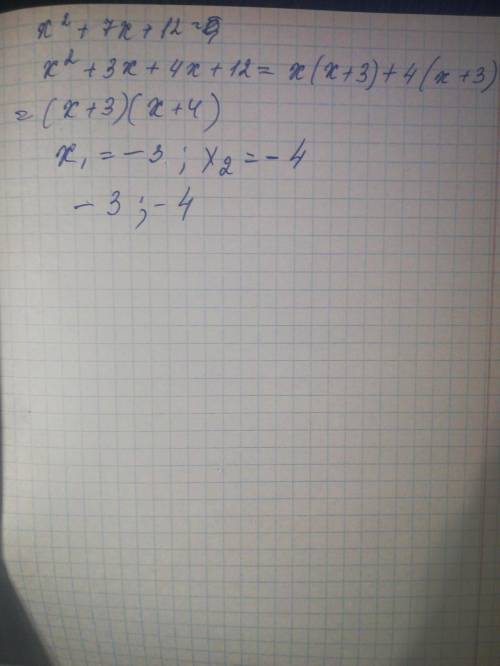 x² + 7x + 12 = 0
x² + 3x + 4x + 12 = x(x+3) + 4(x+3)
= (x+3)(x+4)
x₁ = -3 ; x₂ = -4
-3 ; -4